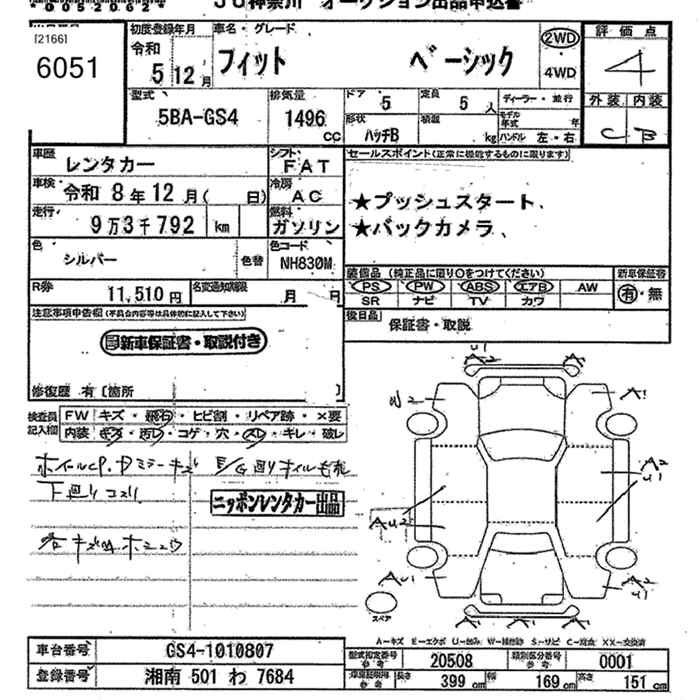 00520620
JU神奈川 オークション出品申込書
[2166]
6051
初度登録年月
令和
5年12月
車名・グレード
フィット ベーシック
2WD
・
4WD
評価点
4
外装 内装
C B
型式
5BA-GS4
排気量
1496
CC
ドア
5
定員
5人
形状
ハッチB
積載
kg
ディーラー・並行
モデル年式
年
ハンドル 左・右
車歴
レンタカー
シフト
FAT
車検
令和 8年12月( 日)
冷房
AC
走行
9万3千792 km
燃料
ガソリン
色
シルバー
色替
色コード
NH830M
R券
11,510円
名変通知期限
月 日
セールスポイント(正常に機能するものに限ります)
★プッシュスタート、
★バックカメラ、
装備品 (純正品に限り○をつけてください)
PS PW ABS エアB AW
SR ナビ TV カワ
新車保証書
有・無
後日品
保証書・取説
注意事項申告欄(不具合内容等は具体的に記入して下さい)
新車保証書・取説付き
修復歴 有〔箇所
検査員
記入欄
FW キズ・飛石・ヒビ割・リペア跡・×要
内装 キズ・汚レ・コゲ・穴・スレ・キレ・破レ
下廻りコスリ
ニッポンレンタカー出品
A1
A2
U1
スペア
A-キズ E-エクボ U-凹み W-補修跡 S-サビ C-腐食 XX-交換済
車台番号
GS4-1010807
登録番号
湘南 501 わ 7684
型式指定番号
参考
20508
類別区分番号
参考
0001
車庫証明用
参考
長さ
399cm
幅
169cm
高さ
151cm